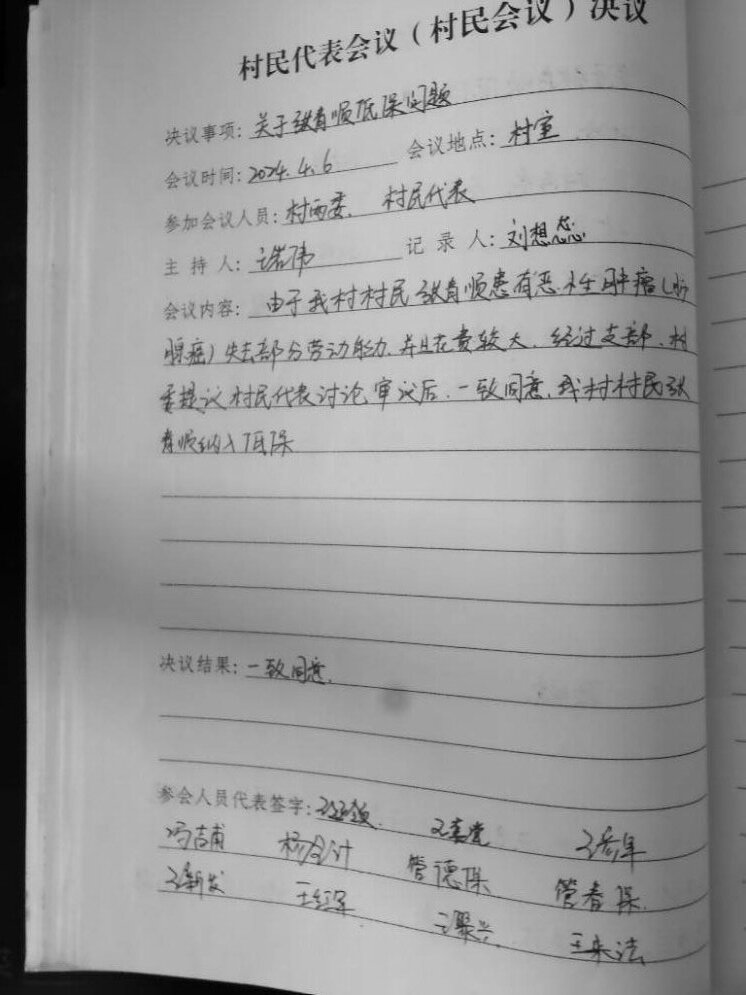 村民代表会议（村民会议）决议
决议事项：关于张有顺低保问题
会议时间：2024.4.6 会议地点：村室
参加会议人员：村两委、村民代表
主持人：伟 记录人：刘想
会议内容：由于我村村民张有顺患有恶性肿瘤（肺
腺癌）失去部分劳动能力，并且花费较大，经过支部、村
委提议村民代表讨论审议后，一致同意，我村村民张
有顺纳入低保
决议结果：一致同意.
参会人员代表签字：
冯吉甫 杨会计 管德保 管春保
王新发 王红军 王聚兴 王来法